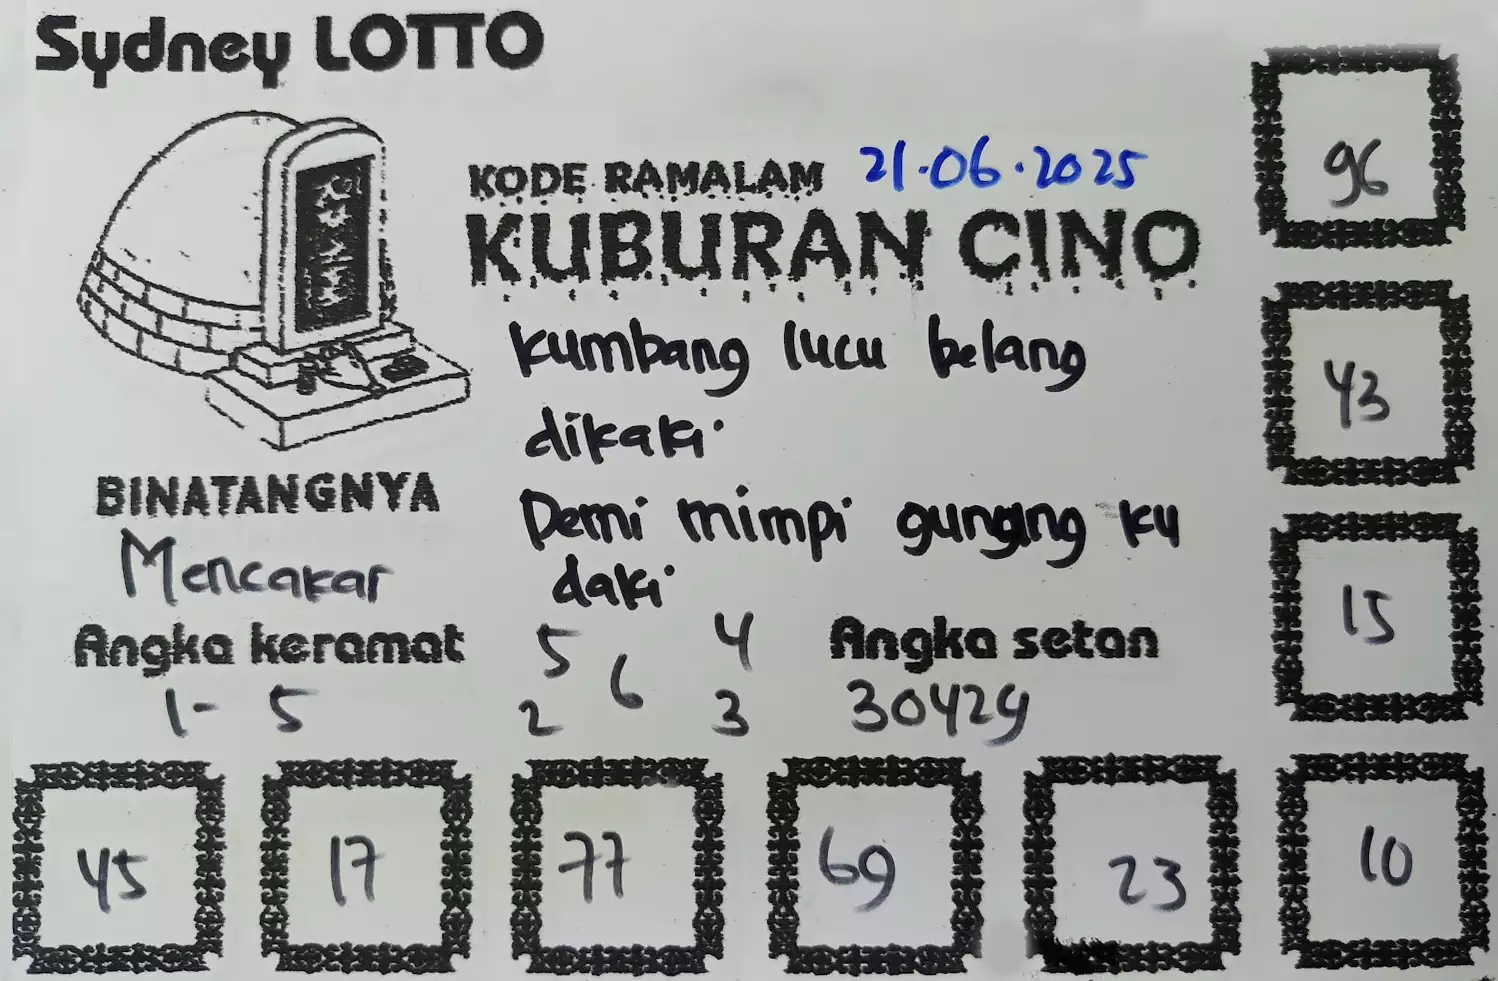 Sydney LOTTO
KODE RAMALAM 21.06.2025
KUBURAN CINO
kumbang lucu belang
dikaki
Demi mimpi gunung ku
daki
BINATANGNYA
Mencakar
Angka keramat
1- 5
5 4
6
2 3
Angka setan
30429
96
43
15
45 17 77 69 23 10